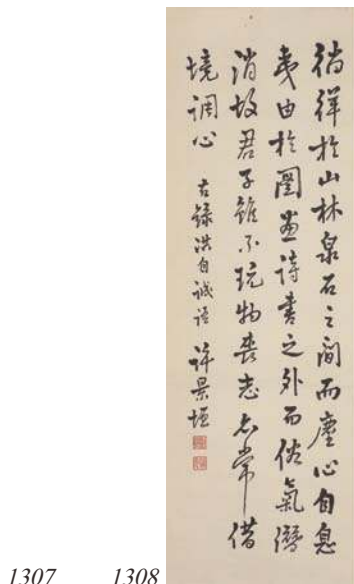 徜徉於山林泉石之間而塵心自息
夷由於圖畫詩書之外而俗氣潛
消故君子雖不玩物喪志亦常借
境調心
右錄洪自誠語 許景
1307 1308